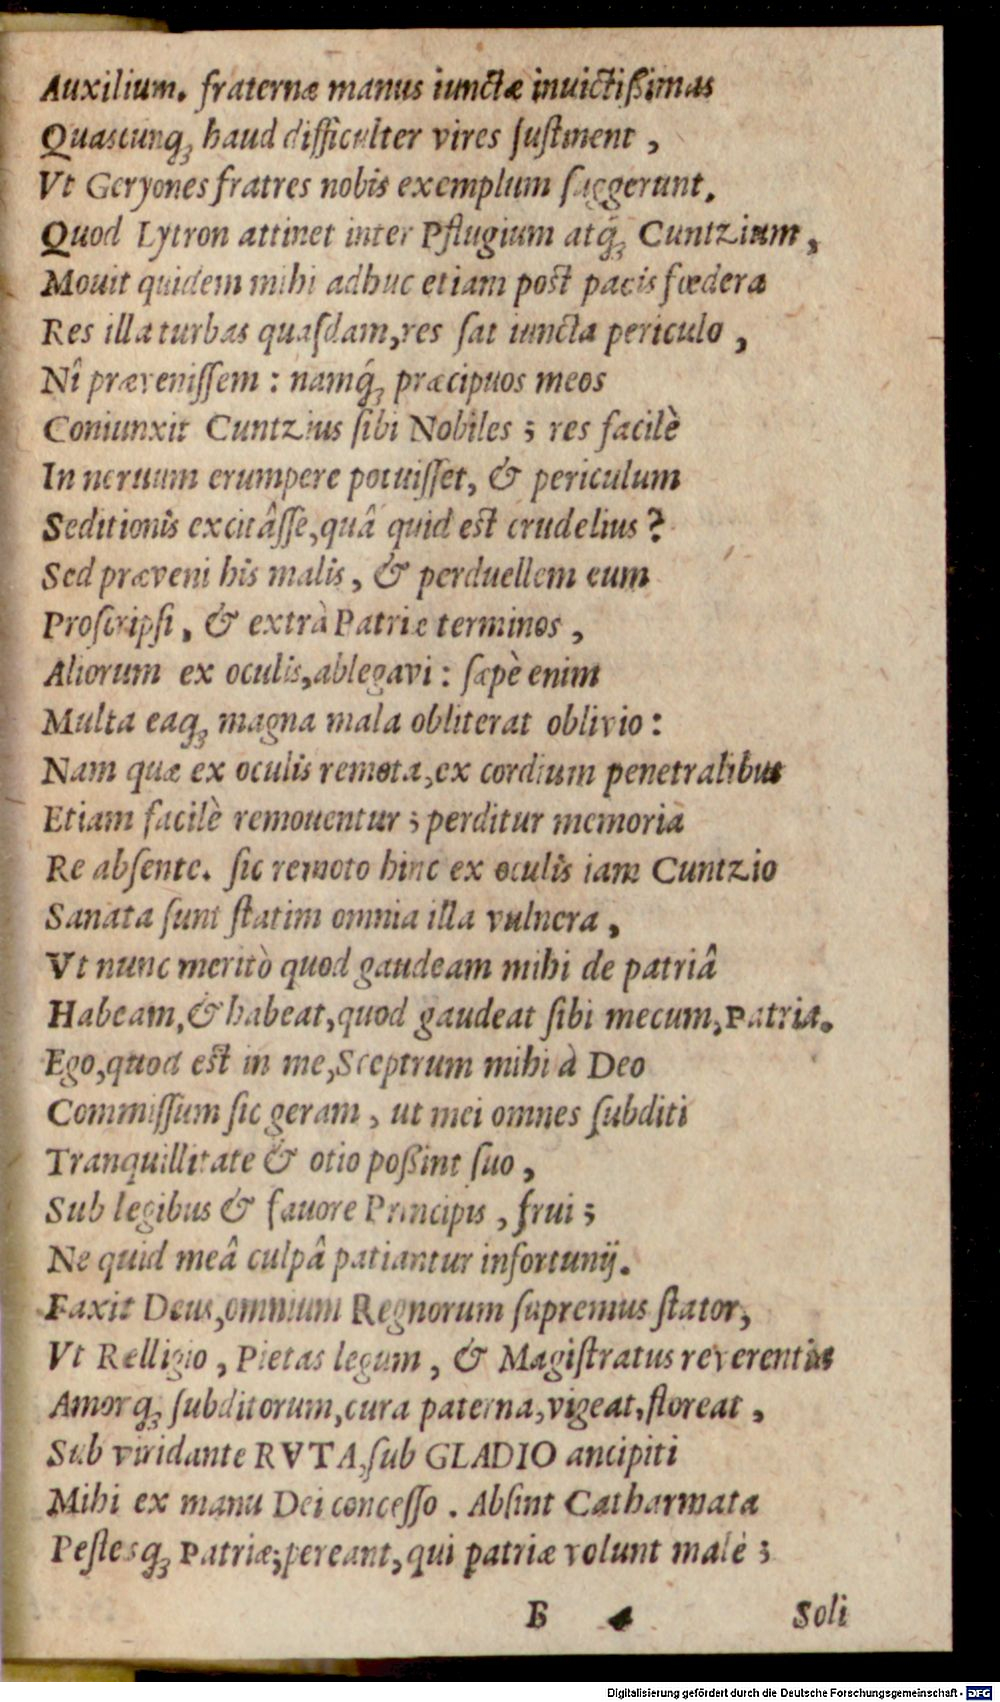 Auxilium. fraternæ manus iunctæ inuictißimas
Quascunq; haud difficulter vires ſuſtinent ,
Vt Geryones fratres nobis exemplum ſuggerunt.
Quod Lytron attinet inter Pflugium atq́; Cuntzium,
Mouit quidem mihi adhuc etiam post pacis fœdera
Res illa turbas quaſdam,res ſat iuncta periculo ,
Nî prævenissem : namq́; præcipuos meos
Coniunxit Cuntzius ſibi Nobiles ; res facilè
In neruum erumpere potuiſſet, & periculum
Seditionis excitâſſe,quâ quid est crudelius ?
Sed præveni his malis , & perduellem eum
Proſcripſi , & extrà Patriæ terminos ,
Aliorum ex oculis,ablegavi : ſæpè enim
Multa eaq; magna mala obliterat oblivio :
Nam quæ ex oculis remota,ex cordium penetralibus
Etiam facilè remouentur ; perditur memoria
Re abſente. ſic remoto hinc ex oculis iam Cuntzio
Sanata ſunt ſtatim omnia illa vulnera ,
Vt nunc meritò quod gaudeam mihi de patriâ
Habeam,& habeat,quod gaudeat ſibi mecum,Patria.
Ego,quod est in me,Sceptrum mihi à Deo
Commiſſum ſic geram , ut mei omnes ſubditi
Tranquillitate & otio poßint ſuo ,
Sub legibus & fauore Principis , frui ;
Ne quid meâ culpâ patiantur infortunij.
Faxit Deus,omnium Regnorum ſupremus ſtator,
Vt Relligio , Pietas legum , & Magiſtratus reverentia
Amorq; ſubditorum,cura paterna,vigeat,floreat ,
Sub viridante RVTA,ſub GLADIO ancipiti
Mihi ex manu Dei conceſſo . Abſint Catharmata
Peſtesq; Patriæ;pereant,qui patriæ volunt malè ;
B 4 Soli
Digitalisierung gefördert durch die Deutsche Forschungsgemeinschaft - DFG